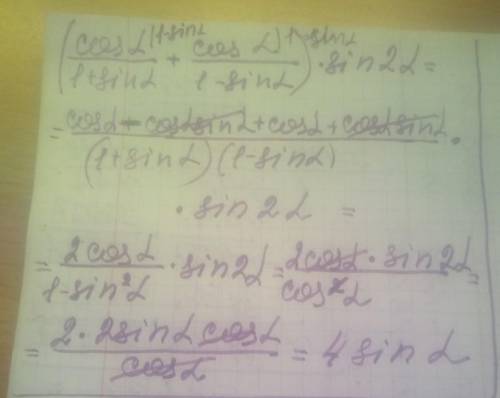 (cosα|1-sinα/1+sinα + cosα|1+sinα/1-sinα) · sin2α =
= cosα - cosαsinα + cosα + cosαsinα/(1+sinα)(1-sinα) ·
· sin2α =
= 2cosα/1-sin²α · sin2α = 2cosα · sin2α/cos²α =
= 2·2sinαcosα/cosα = 4sinα